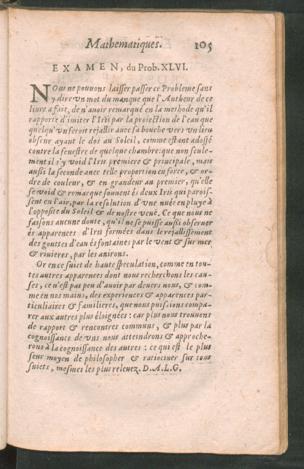 Mathematiques. 105
EXAMEN, du Prob. XLVI.
Nous ne pouvons laisser passer ce Probleme sans
y dire un mot du manque que l'Autheur de ce
livre a fait, de n'avoir remarqué en la methode qu'il
rapporte d'imiter l'Iris par la projection de l'eau que
quelqu'un feroit rejallir avec sa bouche vers un lieu
obscur ayant le dos au Soleil, comme estant adossé
contre la fenestre de quelque chambre: que non seule-
ment il s'y void l'Iris premiere & principale, mais
aussi la seconde avec telle proportion en force, & or-
dre de couleur, & en grandeur au premier, qu'elle
se void & remarque souvent és deux Iris qui parois-
sent en l'air, par la resolution d'une nuée en pluye à
l'opposite du Soleil & de nostre veuë. Ce que nous ne
faisons aucune doute, qu'il ne se puisse aussi observer
és apparences d'Iris formées dans le rejallissement
des gouttes d'eau és fontaines par le vent & sur mer
& rivieres, par les avirons.
Or en ce suiet de haute speculation, comme en tou-
tes autres apparences dont nous recherchons les cau-
ses, ce n'est pas peu d'avoir par devers nous, & com-
me en nos mains, des experiences & apparences par-
ticuliaires & familieres, que nous puissions compa-
rer aux autres plus éloignées: car plus nous trouvons
de rapport & rencontres communs, & plus par la
cognoissance de uns nous atteindrons & approche-
rons à la cognoissance des autres: ce qui est le plus
seur moyen de philosopher & ratiociner sur tous
suiets, mesmes les plus relevez. D. A. L. G.